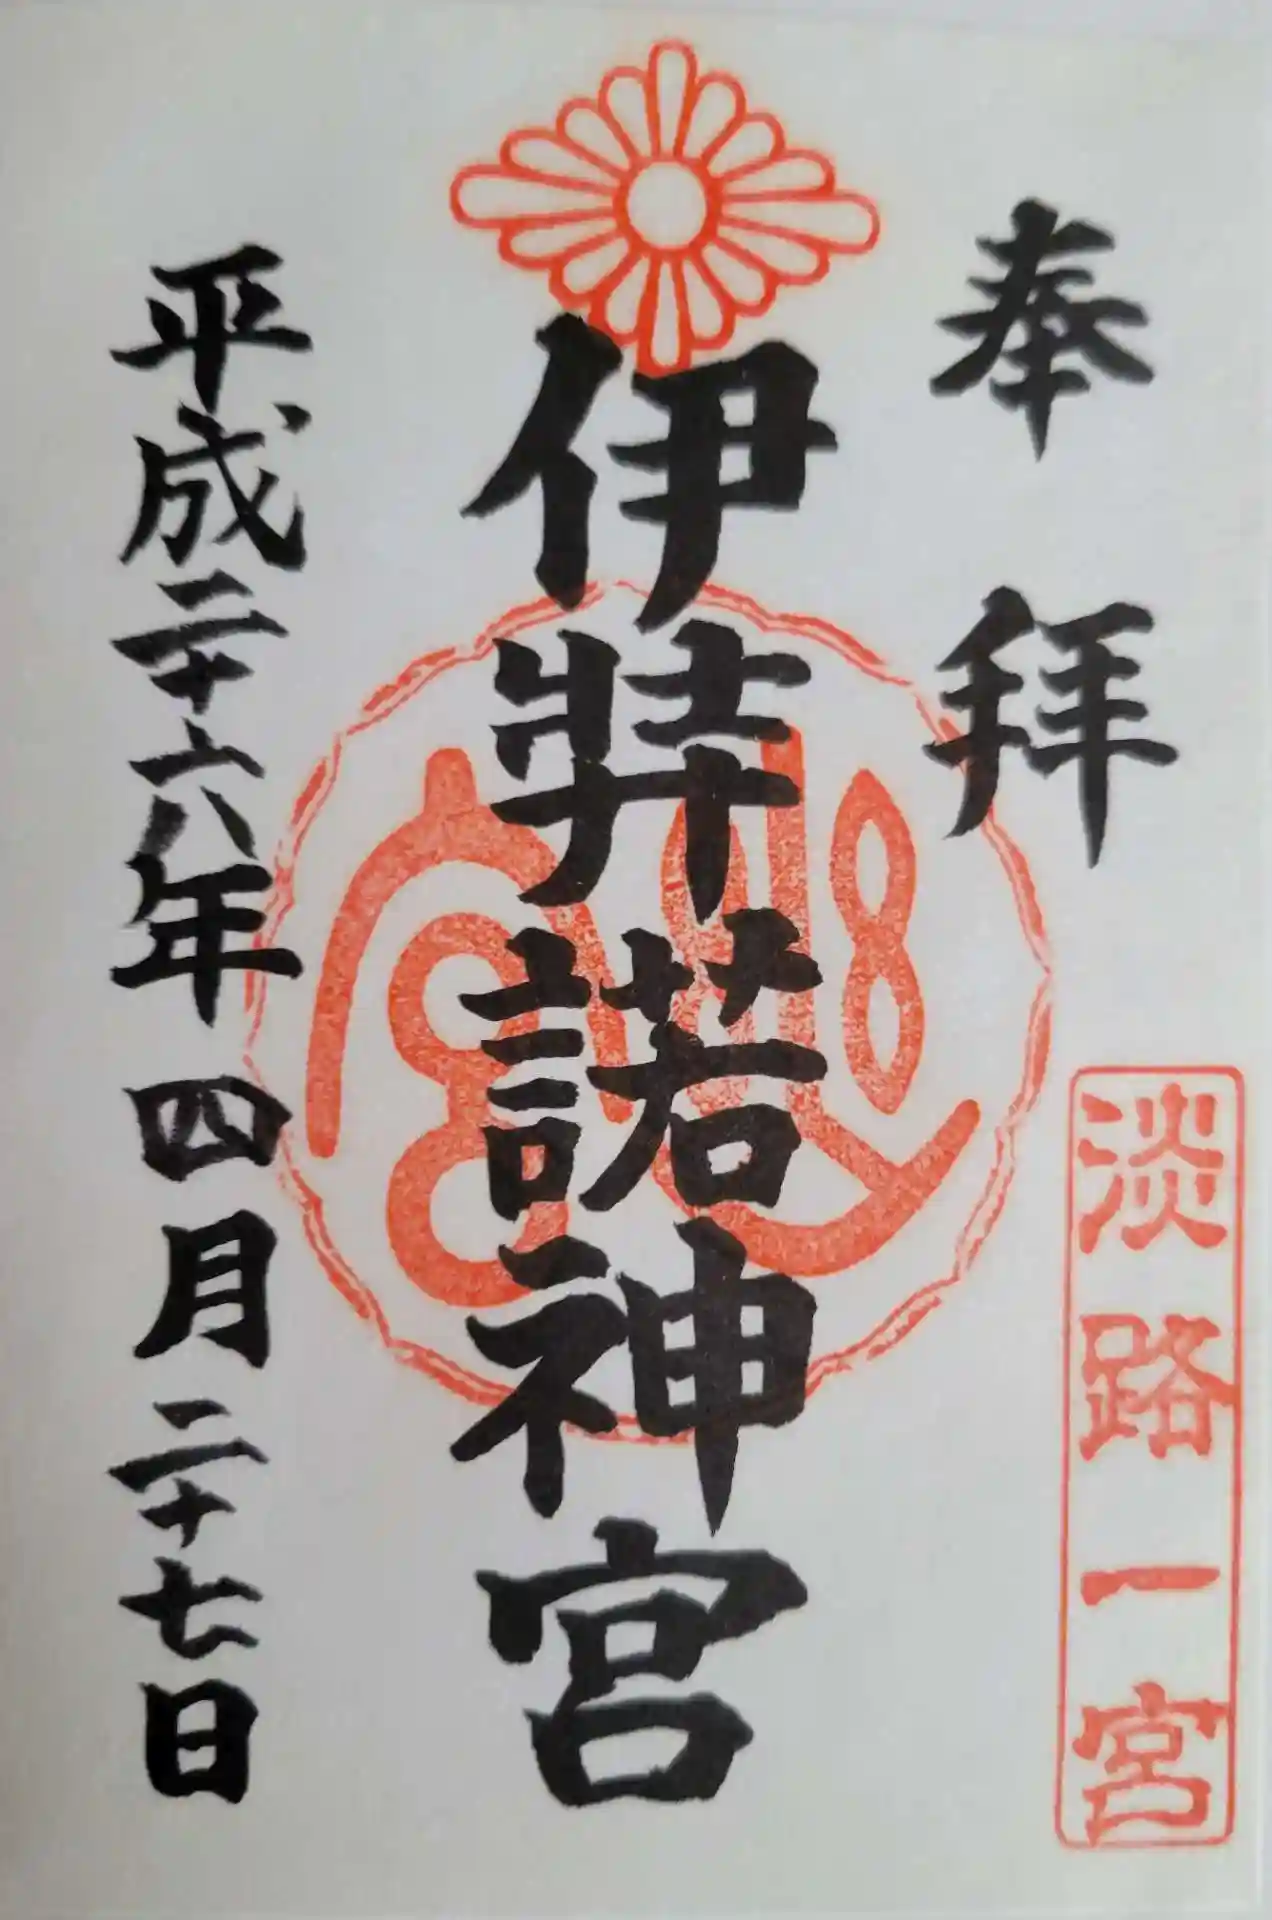 奉拝
淡路一宮
伊弉諾神宮
平成二十六年四月二十七日